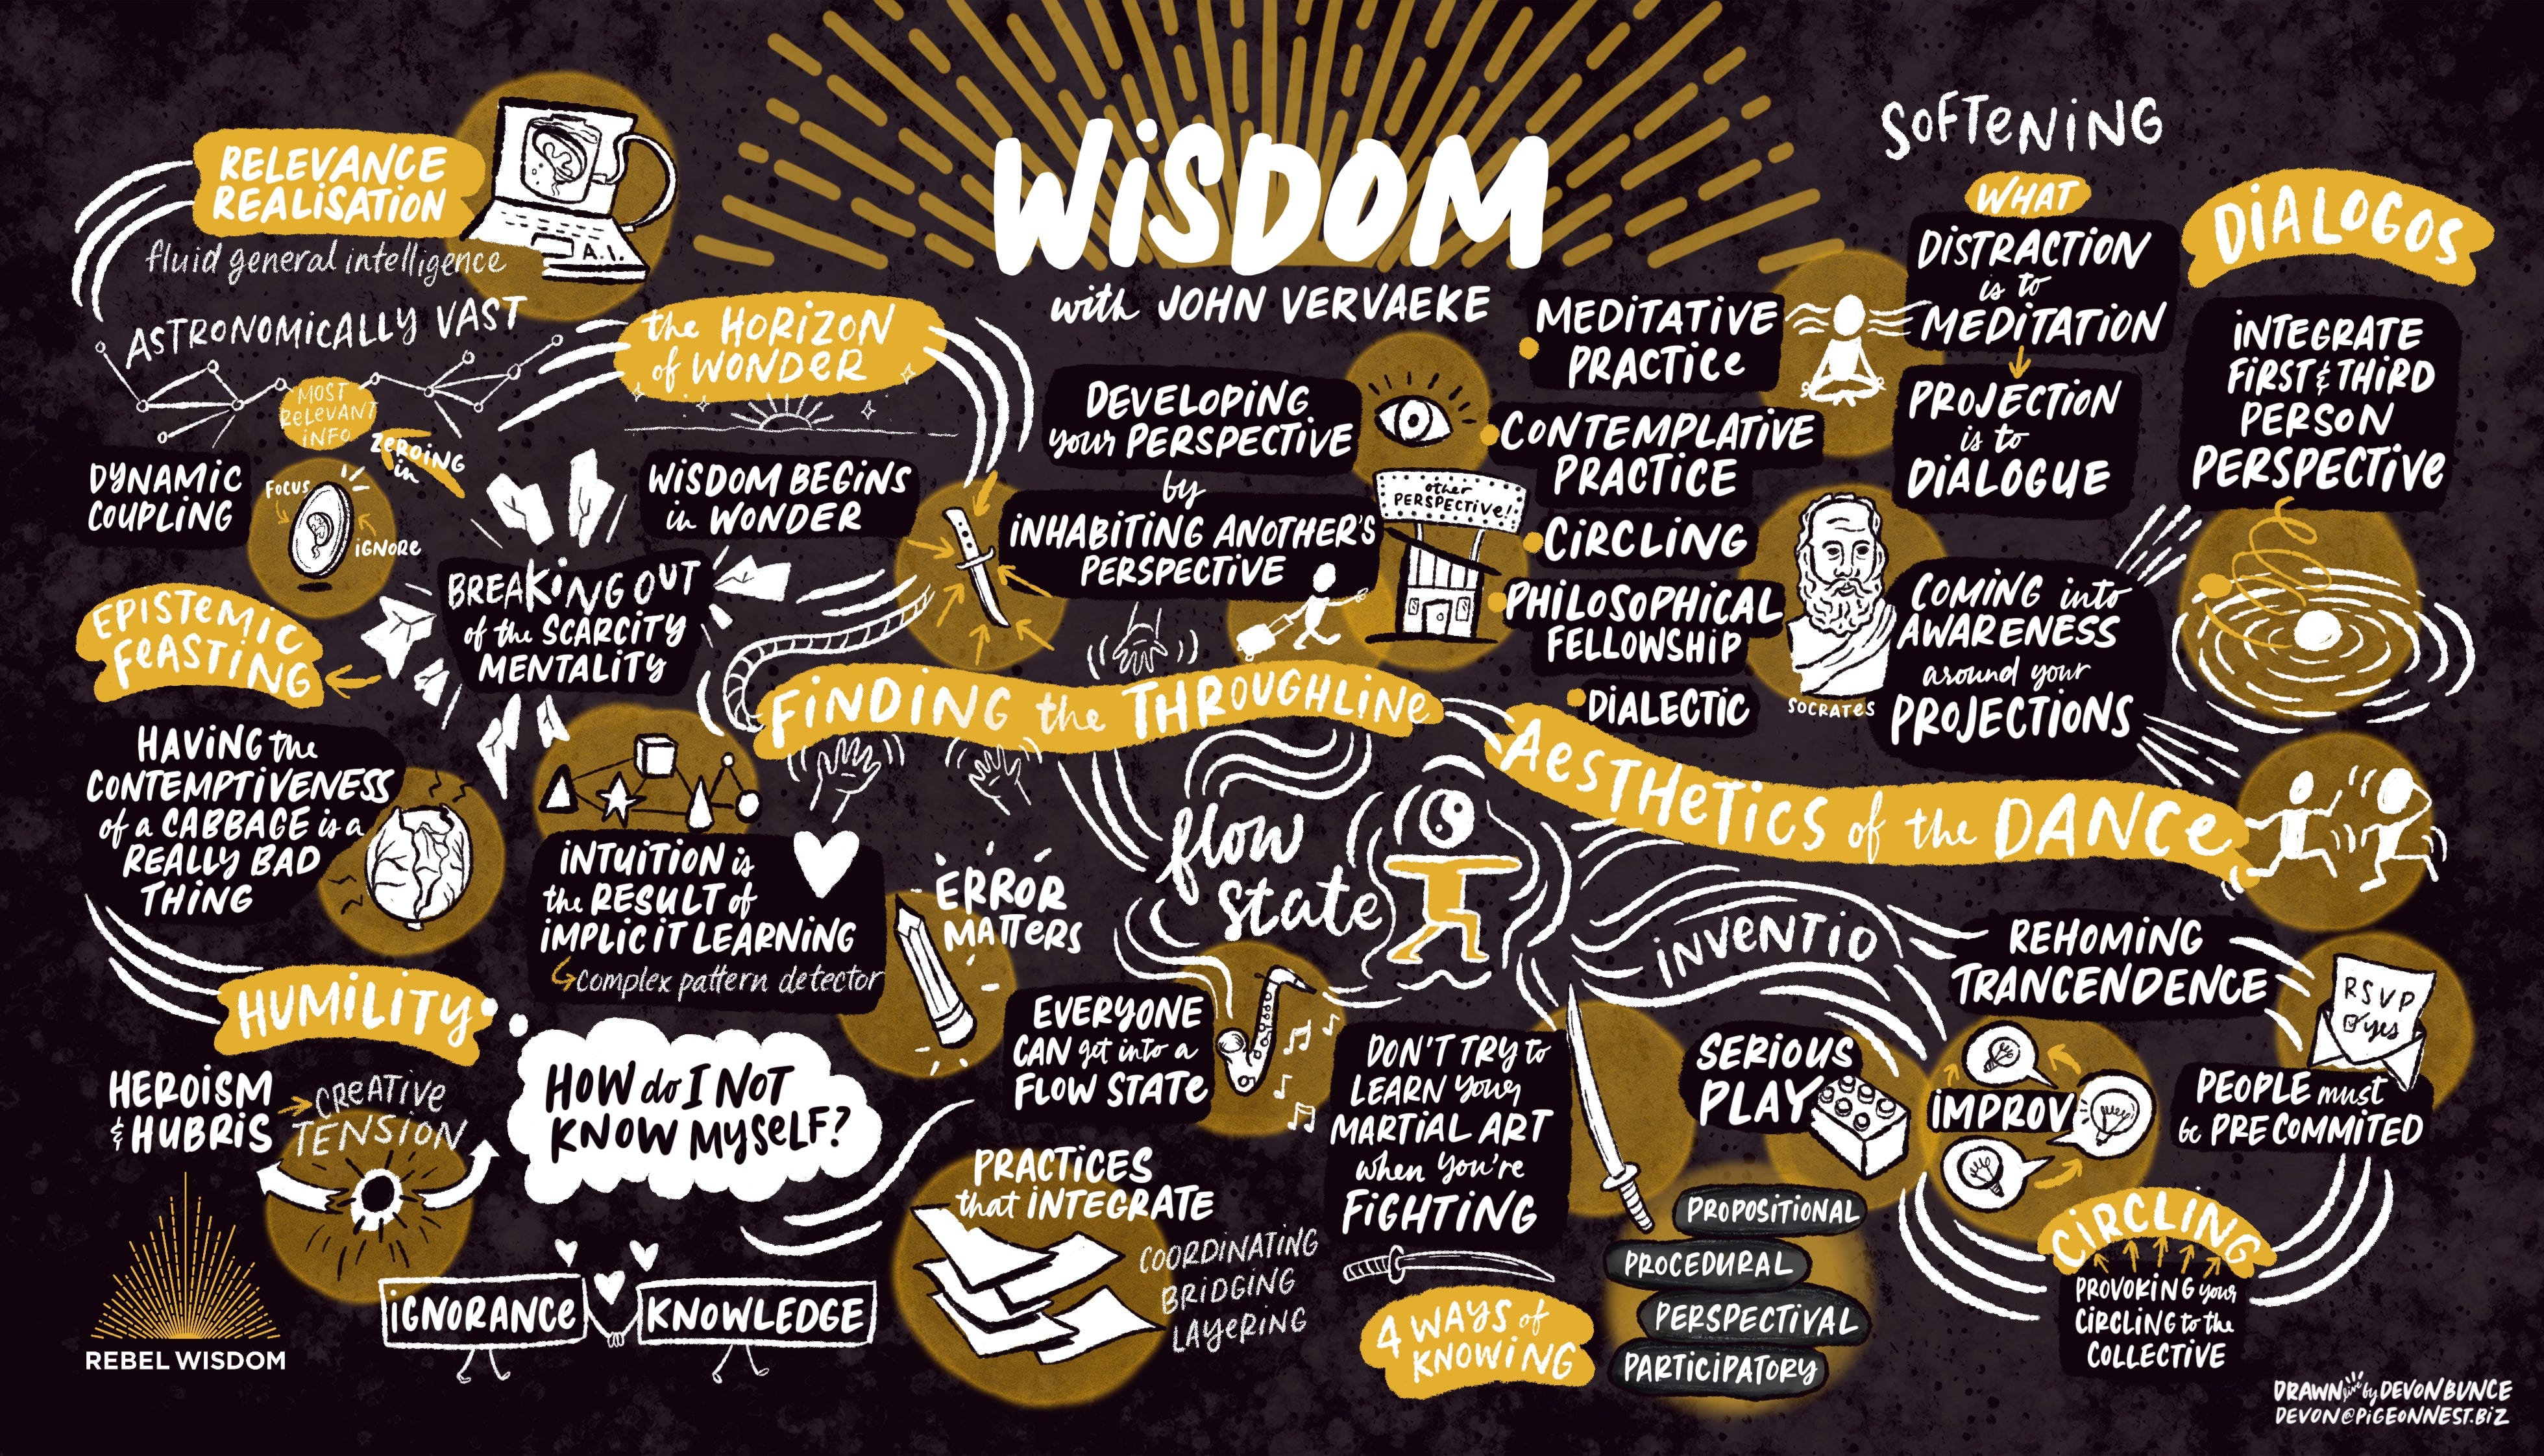 WISDOM
with JOHN VERVAEKE
RELEVANCE
REALISATION
A.I.
fluid general intelligence
ASTRONOMICALLY VAST
MOST
RELEVANT
INFO
ZEROING
in
DYNAMIC
COUPLING
FOCUS
IGNORE
the HORIZON
of WONDER
WISDOM BEGINS
in WONDER
BREAKING OUT
of the SCARCITY
MENTALITY
EPISTEMIC
FEASTING
HAVING the
CONTEMPTIVENESS
of a CABBAGE is a
REALLY BAD
THING
INTUITION is
the RESULT of
IMPLICIT LEARNING
complex pattern detector
HUMILITY
HEROISM
& HUBRIS
CREATIVE
TENSION
HOW do I NOT
KNOW MYSELF?
IGNORANCE
KNOWLEDGE
REBEL WISDOM
DEVELOPING
your PERSPECTIVE
by
INHABITING ANOTHER'S
PERSPECTIVE
other
PERSPECTIVE!
FINDING the THROUGHLINE
ERROR
MATTERS
flow
state
EVERYONE
CAN get into a
FLOW STATE
PRACTICES
that INTEGRATE
COORDINATING
BRIDGING
LAYERING
DON'T TRY to
LEARN your
MARTIAL ART
when you're
FIGHTING
4 WAYS of
KNOWING
PROPOSITIONAL
PROCEDURAL
PERSPECTIVAL
PARTICIPATORY
MEDITATIVE
PRACTICE
CONTEMPLATIVE
PRACTICE
CIRCLING
PHILOSOPHICAL
FELLOWSHIP
DIALECTIC
SOCRATES
SOFTENING
WHAT
DISTRACTION
is to
MEDITATION
PROJECTION
is to
DIALOGUE
COMING into
AWARENESS
around your
PROJECTIONS
DIALOGOS
INTEGRATE
FIRST & THIRD
PERSON
PERSPECTIVE
AESTHETICS of the DANCE
INVENTIO
REHOMING
TRANCENDENCE
RSVP
yes
SERIOUS
PLAY
IMPROV
PEOPLE must
be PRECOMMITED
CIRCLING
PROVOKING your
CIRCLING to the
COLLECTIVE
DRAWN live by DEVON BUNCE
DEVON@PIGEONNEST.BIZ